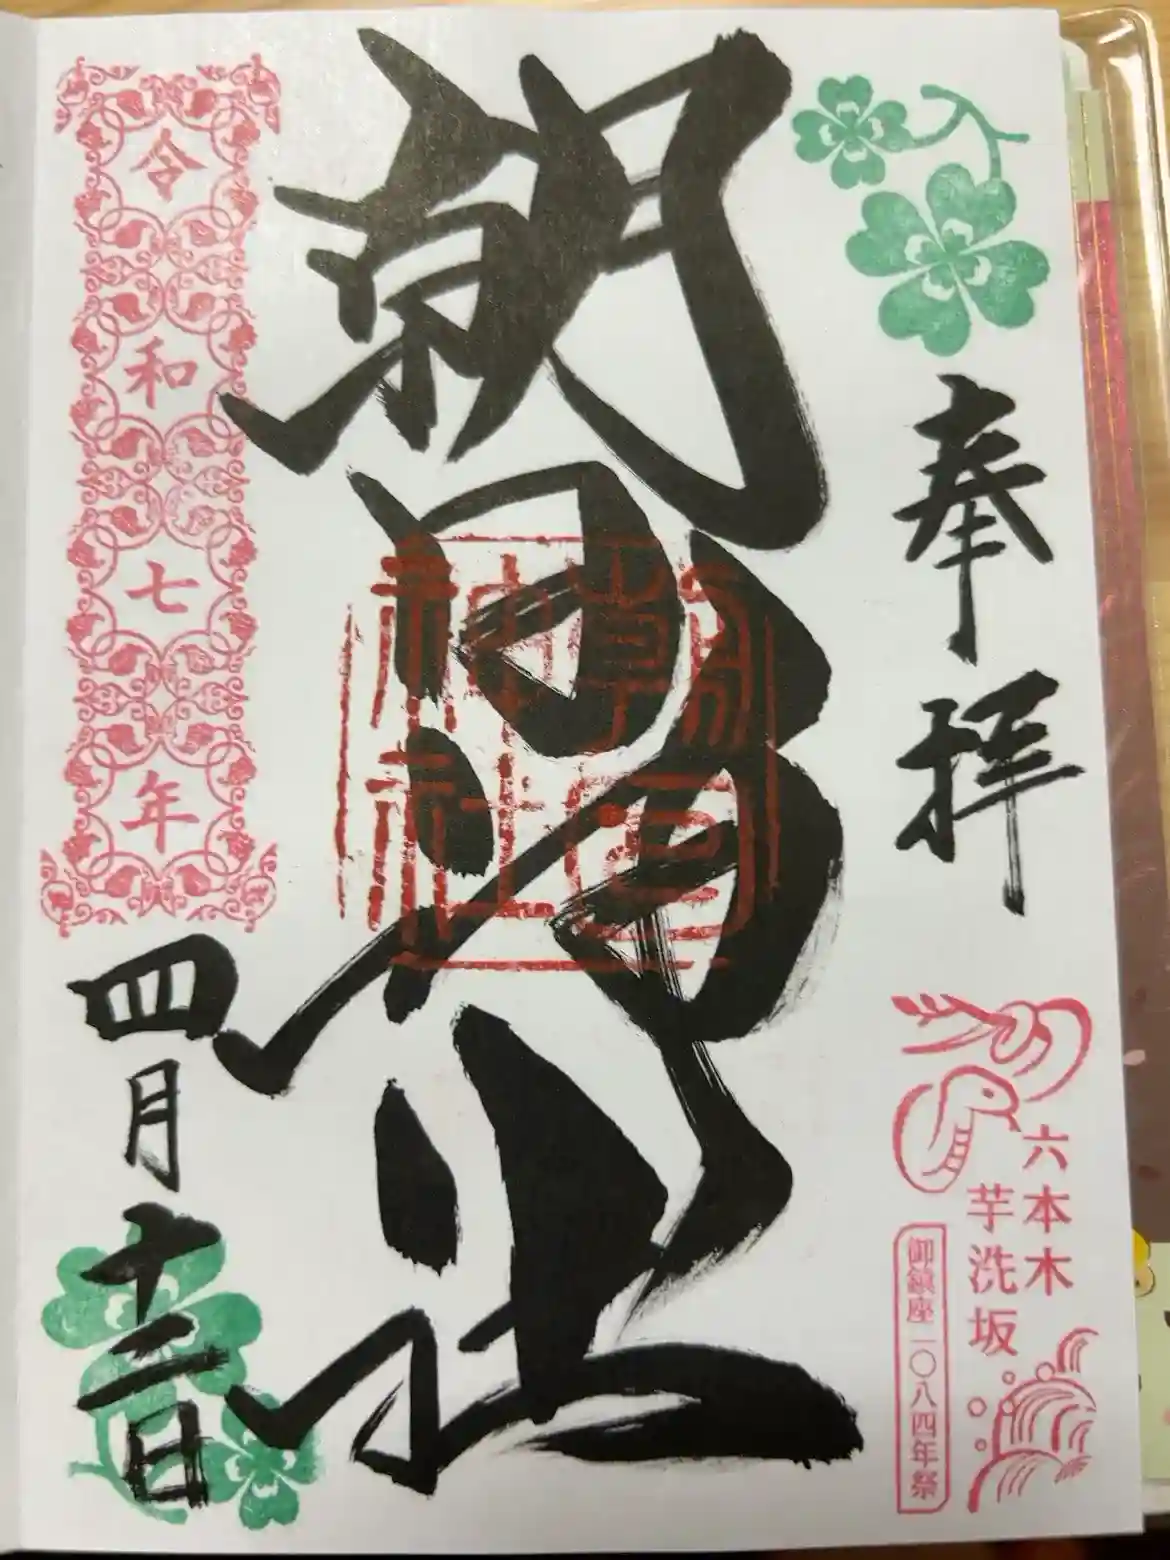 奉拝
六本木
芋洗坂
御鎮座一〇八四年祭
朝日神社
朝日
神社
令和七年
四月十二日